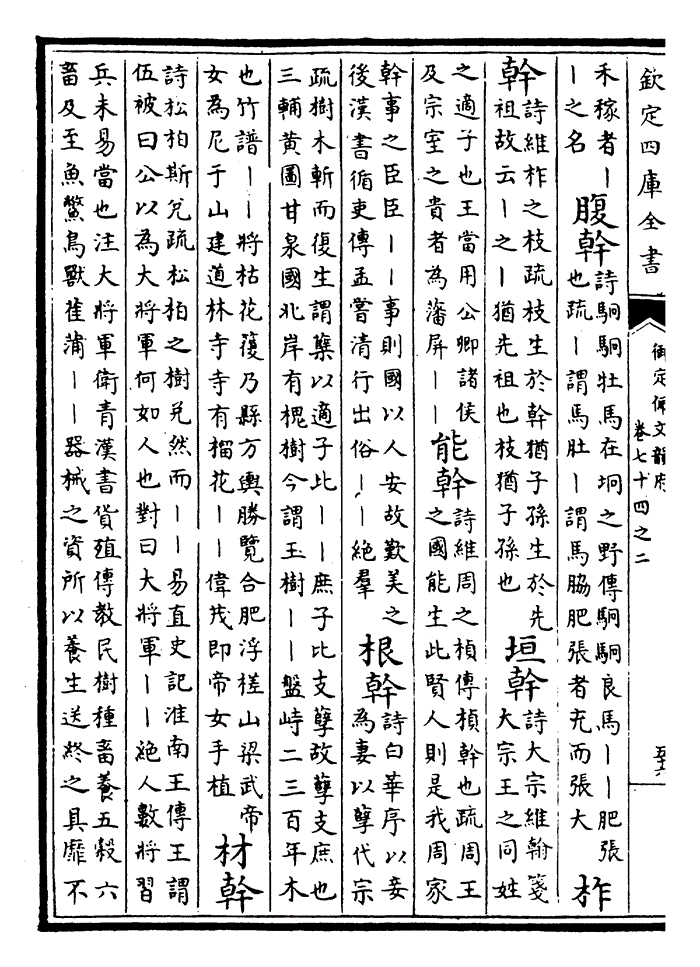 欽定四庫全書
御定佩文韻府
卷七十四之二
禾稼者丨
丨之名
腹幹
詩駉駉牡馬在坰之野傳駉駉良馬丨丨肥張
也疏丨謂馬肚丨謂馬脇肥張者充而張大
柞
幹
詩維柞之枝疏枝生於幹猶子孫生於先
祖故云丨之丨猶先祖也枝猶子孫也
垣幹
詩大宗維翰箋
大宗王之同姓
之適子也王當用公卿諸侯
及宗室之貴者為藩屏丨丨
能幹
詩維周之楨傳楨幹也疏周王
之國能生此賢人則是我周家
幹事之臣臣丨丨事則國以人安故歎美之
後漢書循吏傳孟嘗清行出俗丨丨絶羣
根幹
詩白華序以妾
為妻以孽代宗
疏樹木斬而復生謂櫱以適子比丨丨庶子比支孽故孽支庶也
三輔黃圖甘泉國北岸有槐樹今謂玉樹丨丨盤峙二三百年木
也竹譜丨丨將枯花蕧乃縣方輿勝覽合肥浮槎山梁武帝
女為尼于山建道林寺寺有榴花丨丨偉茂即帝女手植
材幹
詩松柏斯兌疏松柏之樹兌然而丨丨易直史記淮南王傳王謂
伍被曰公以為大將軍何如人也對曰大將軍丨丨絶人數將習
兵未易當也注大將軍衛青漢書貨殖傳教民樹種畜養五穀六
畜及至魚鱉鳥獸雚蒲丨丨器械之資所以養生送終之具靡不